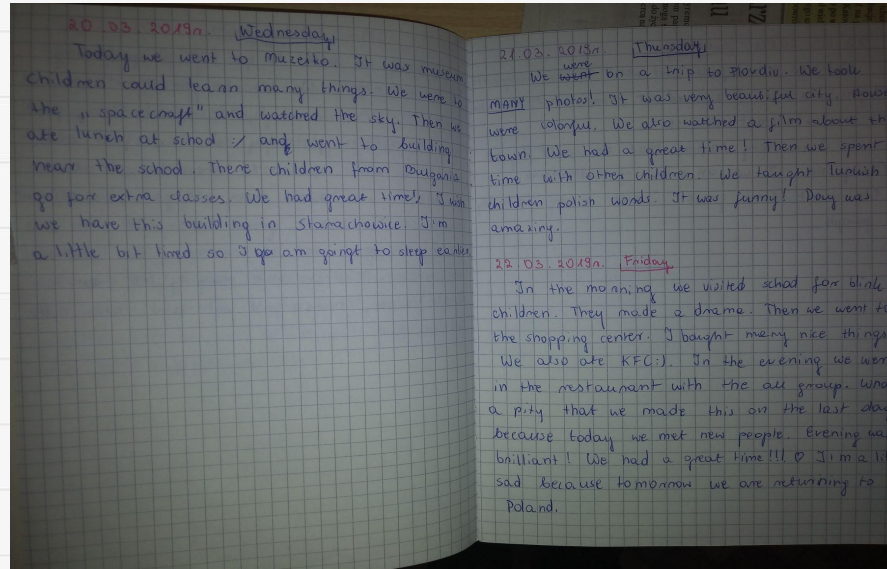 20.03.2019r. Wednesday
Today we went to muzeiko. It was museum
children could learn many things. We were to
the „spacecraft" and watched the sky. Then we
ate lunch at school :/ and went to building
near the school. There children from Bulgaria
go for extra classes. We had great time! I wish
we have this building in Starachowice. I'm
a little bit tired so I go am goingt to sleep earlier
21.03.2019r. Thursday
We went were on a trip to Plovdiv. We took
MANY photos! It was very beautiful city. Houses
were colorful. We also watched a film about the
town. We had a great time! Then we spent
time with other children. We taught Turkish
children polish words. It was funny! Day was
amazing.
22.03.2019r. Friday
In the morning we visited school for blind
children. They made a drama. Then we went to
the shopping center. I bought many nice things
We also ate KFC :). In the evening we were
in the restaurant with the all group. What
a pity that we made this on the last day
because today we met new people. Evening was
brilliant! We had a great time!!! ♡ I'm a
sad because tomorrow we are returning to
Poland.